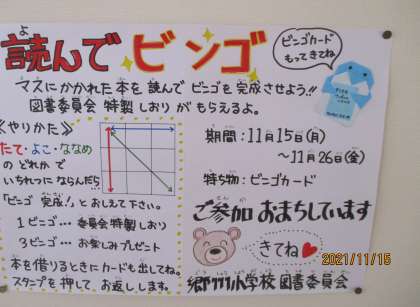 読んでビンゴ
ビンゴカード
もってきてね
マスにかかれた本を読んでビンゴを完成させよう!!
図書委員会特製しおりがもらえるよ。
≪やりかた≫
たて・よこ・ななめ
のどれかで
いちれつにならんだら…
「ビンゴ完成！」とおしえて下さい。
1ビンゴ…委員会特製しおり
3ビンゴ…お楽しみプレゼント
本を借りるときにカードも出してね。
スタンプを押して、お返しします。
期間：11月15日(月)
～11月26日(金)
持ち物：ビンゴカード
ご参加おまちしています
きてね
小学校図書委員会
2021/11/15